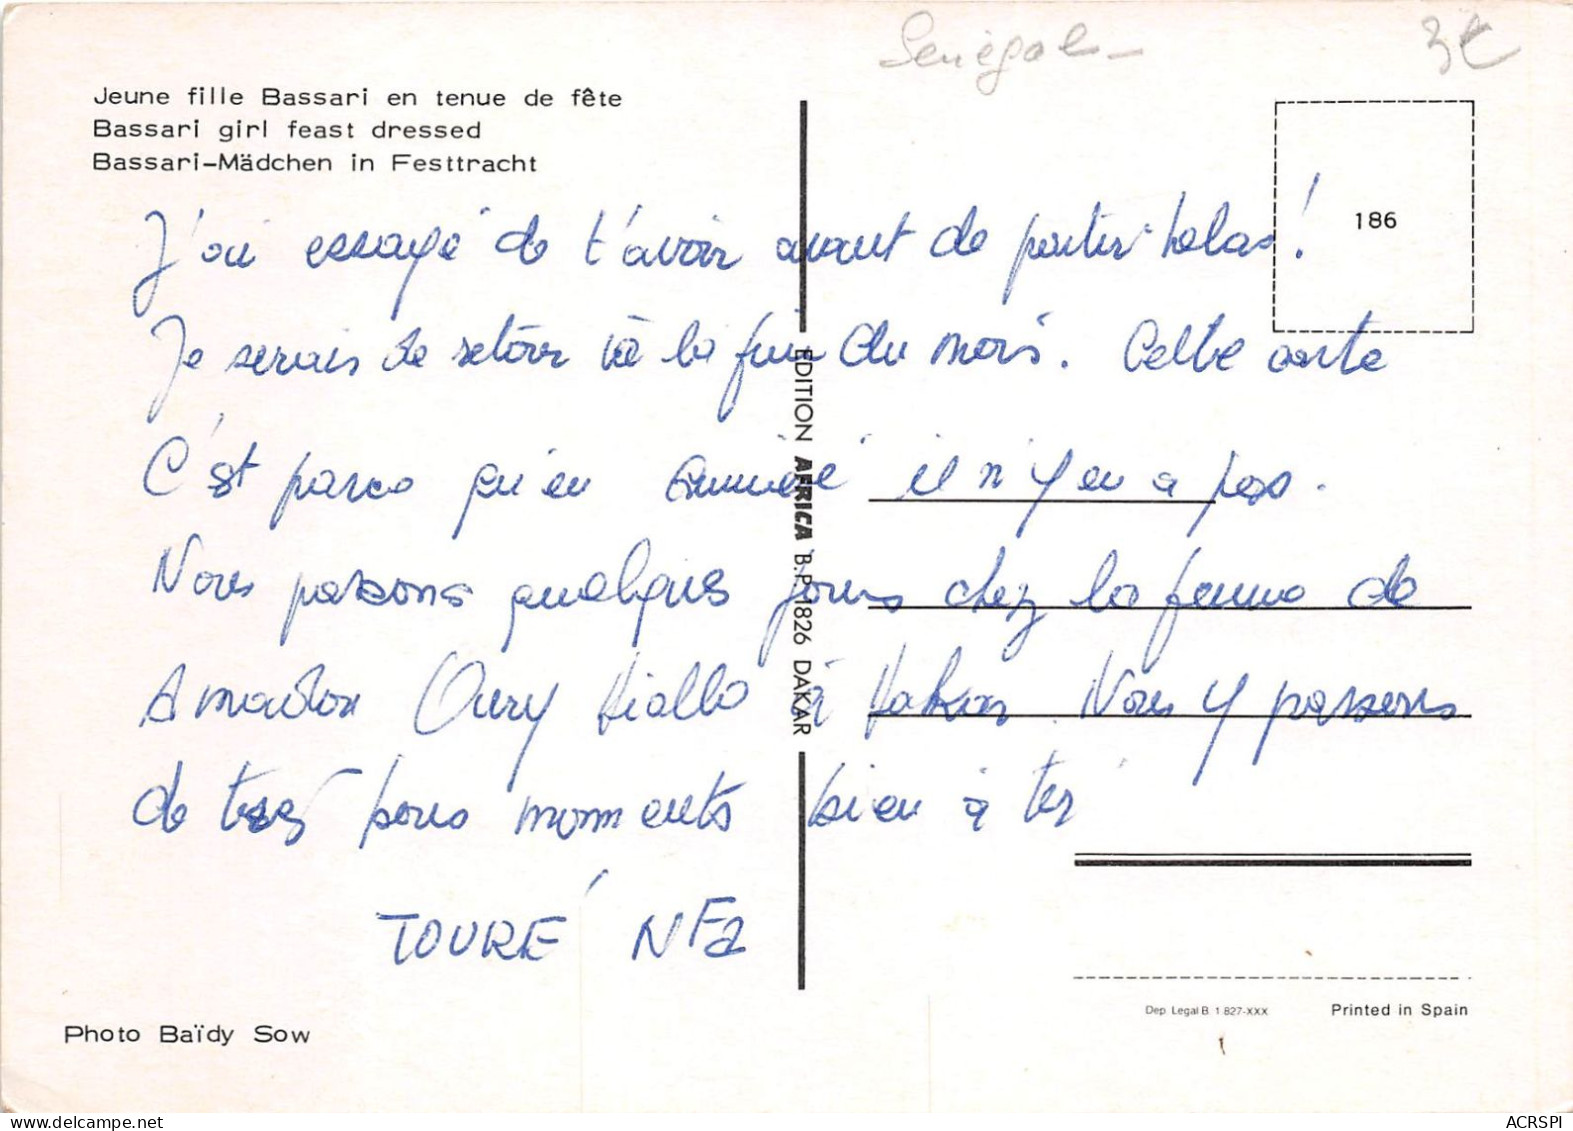 Senégal
3€
Jeune fille Bassari en tenue de fête
Bassari girl feast dressed
Bassari-Mädchen in Festtracht
186
J'ai essayé de t'avoir avant de partir helas!
Je serais de retour à la fin du mois. Cette carte
C'est parce qu'en il n'y en a pas.
Nous passons quelques jours chez la femme de
Amadou Oury Diallo à Dakar Nous y passons
de tres bons moments bien à toi
TOURÉ NFa
EDITION AFRICA B.P. 1826 DAKAR
Photo Baïdy Sow
Dep. Legal B. 1.827-XXX
Printed in Spain
ACRSPI